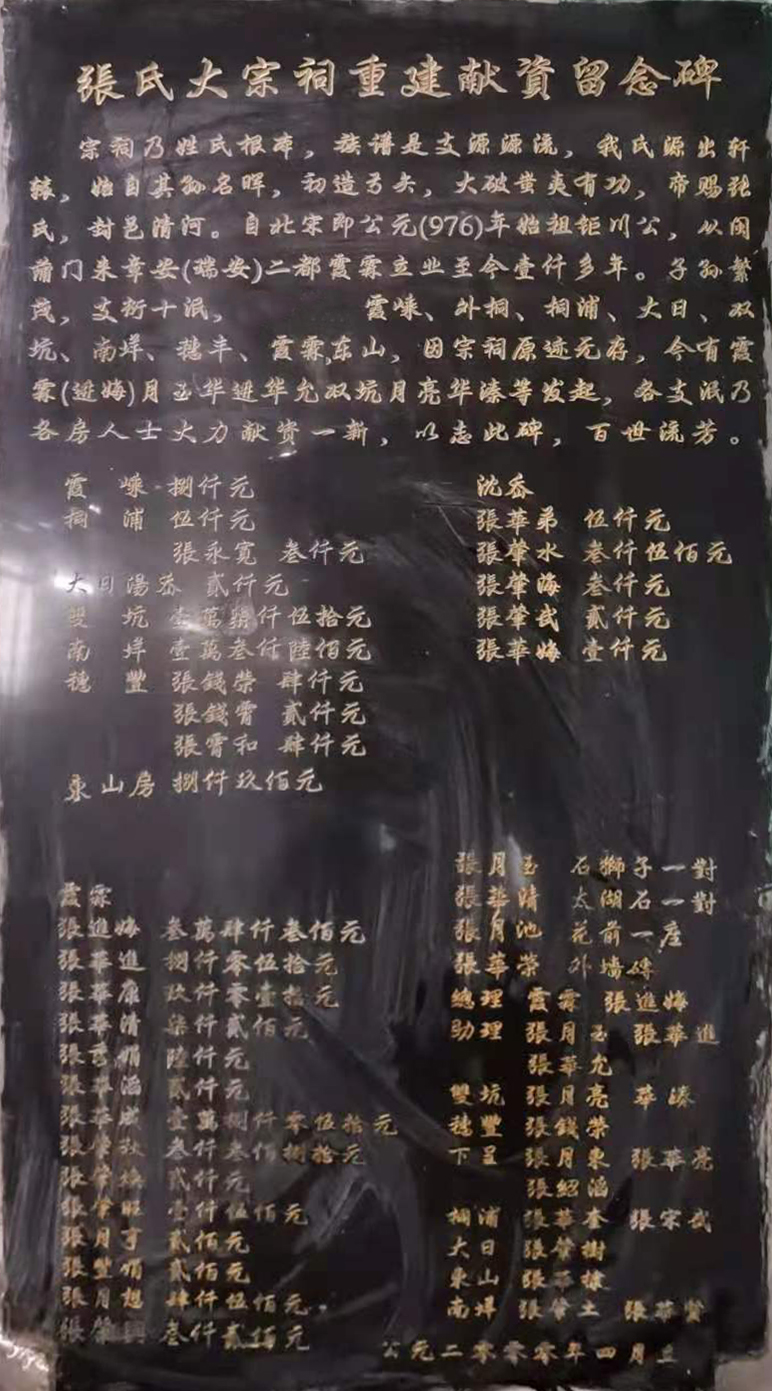 張氏大宗祠重建献資留念碑
宗祠乃姓氏根本，族谱是支源源流，我氏源出轩
辕，始自其孙名晖，初造弓矢，大破蚩夷有功，帝赐张
氏，封邑清河。自北宋即公元(976)年始祖钜川公，从闽
莆门来章安(瑞安)二都霞霖立业至今壹仟多年。子孙繁
茂，支衍十泯，霞嵊、外桐、桐浦、大日、双
坑、南垟、穗丰、霞霖,东山，因宗祠原迹无存，今有霞
霖(进梅)月玉华进华允双坑月亮华溱等发起，各支泯乃
各房人士大力献资一新，以志此碑，百世流芳。
霞嵊 捌仟元
祠浦 伍仟元
張永寬 叁仟元
大日湯岙 貳仟元
雙坑 壹萬柒仟伍拾元
南垟 壹萬叁仟陸佰元
穗豐 張錢榮 肆仟元
張錢霄 貳仟元
張霄和 肆仟元
東山房 捌仟玖佰元
沈岙
張華弟 伍仟元
張肇水 叁仟伍佰元
張肇海 叁仟元
張肇武 貳仟元
張華梅 壹仟元
霞霖
張進梅 叁萬肆仟叁佰元
張華進 捌仟零伍拾元
張華康 玖仟零壹拾元
張華清 柒仟貳佰元
張 娟 陸仟元
張華滔 貳仟元
張華 壹萬捌仟零伍拾元
張肇 叁仟叁佰捌拾元
張肇 貳仟元
張肇 壹仟伍佰元
張月亨 貳佰元
張豐娟 貳佰元
張月想 肆仟伍佰元
張肇興 叁仟貳佰元
張月玉 石獅子一對
張華清 太湖石一對
張月池 花前一座
張華榮 外墙磚
總理 霞霖 張進梅
助理 張月玉 張華進
張華允
雙坑 張月亮 華溱
穗豐 張錢榮
下呈 張月東 張華亮
張紹滔
桐浦 張華奎 張宋武
大日 張肇樹
東山 張華棣
南垟 張肇土 張華賢
公元二零零零年四月立